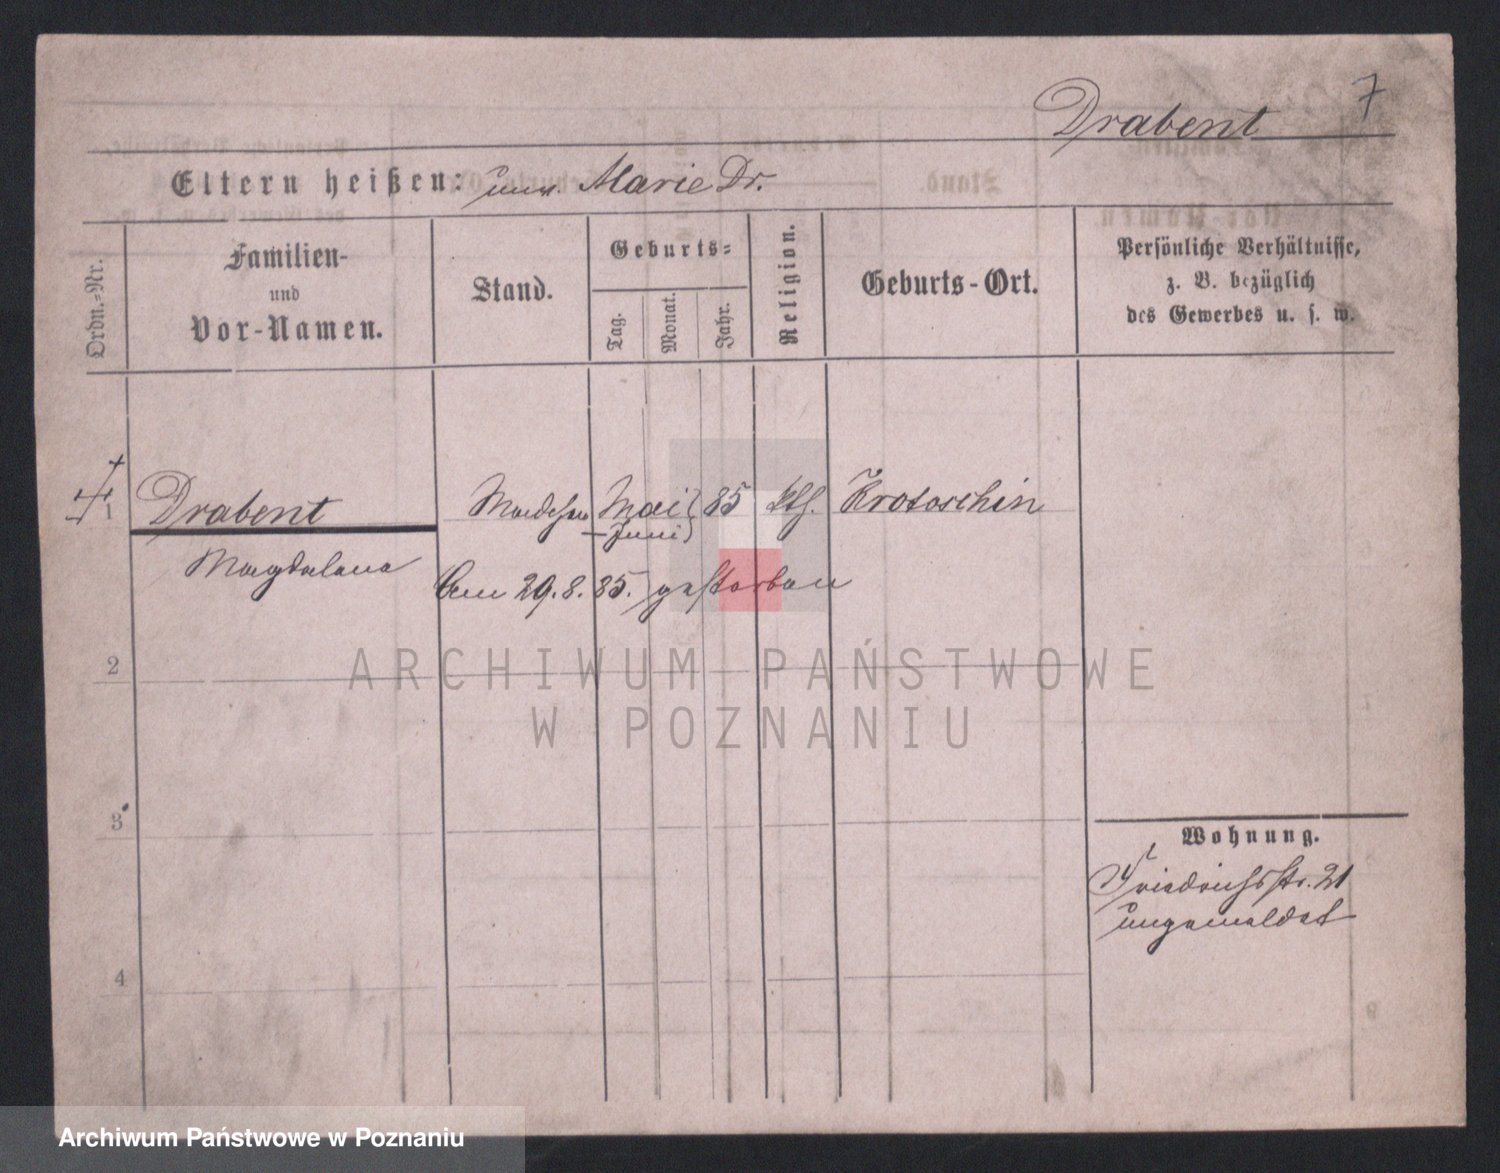 7
Drabent
Eltern heißen: unv. Marie Dr.
Ordn.=Nr.
Familien-
und
Vor-Namen.
Stand.
Geburts=
Tag.
Monat.
Jahr.
Religion.
Geburts-Ort.
Persönliche Verhältnisse,
z. B. bezüglich
des Gewerbes u. s. w.
1 Drabent Maedchen Mai 85 kth. Krotoschin
– Juni)
Magdalena
Am 29.8.85. gestorben
ARCHIWUM PAŃSTWOWE
W POZNANIU
2
3
4
Wohnung.
Friedrichsstr. 21
ungemeldet
Archiwum Państwowe w Poznaniu